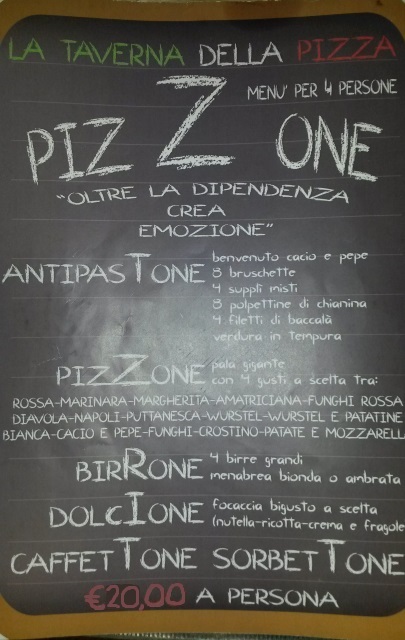 LA TAVERNA DELLA PIZZA
MENU' PER 4 PERSONE
PIZZONE
"OLTRE LA DIPENDENZA
CREA
EMOZIONE"
ANTIPASTONE
benvenuto cacio e pepe
8 bruschette
4 supplì misti
8 polpettine di chianina
4 filetti di baccalà
verdura in tempura
PIZZONE
pala gigante
con 4 gusti a scelta tra:
ROSSA-MARINARA-MARGHERITA-AMATRICIANA-FUNGHI ROSSA
DIAVOLA-NAPOLI-PUTTANESCA-WURSTEL-WURSTEL E PATATINE
BIANCA-CACIO E PEPE-FUNGHI-CROSTINO-PATATE E MOZZARELL
BIRRONE
4 birre grandi
menabrea bionda o ambrata
DOLCIONE
focaccia bigusto a scelta
(nutella-ricotta-crema e fragole
CAFFETTONE SORBETTONE
€20,00 A PERSONA